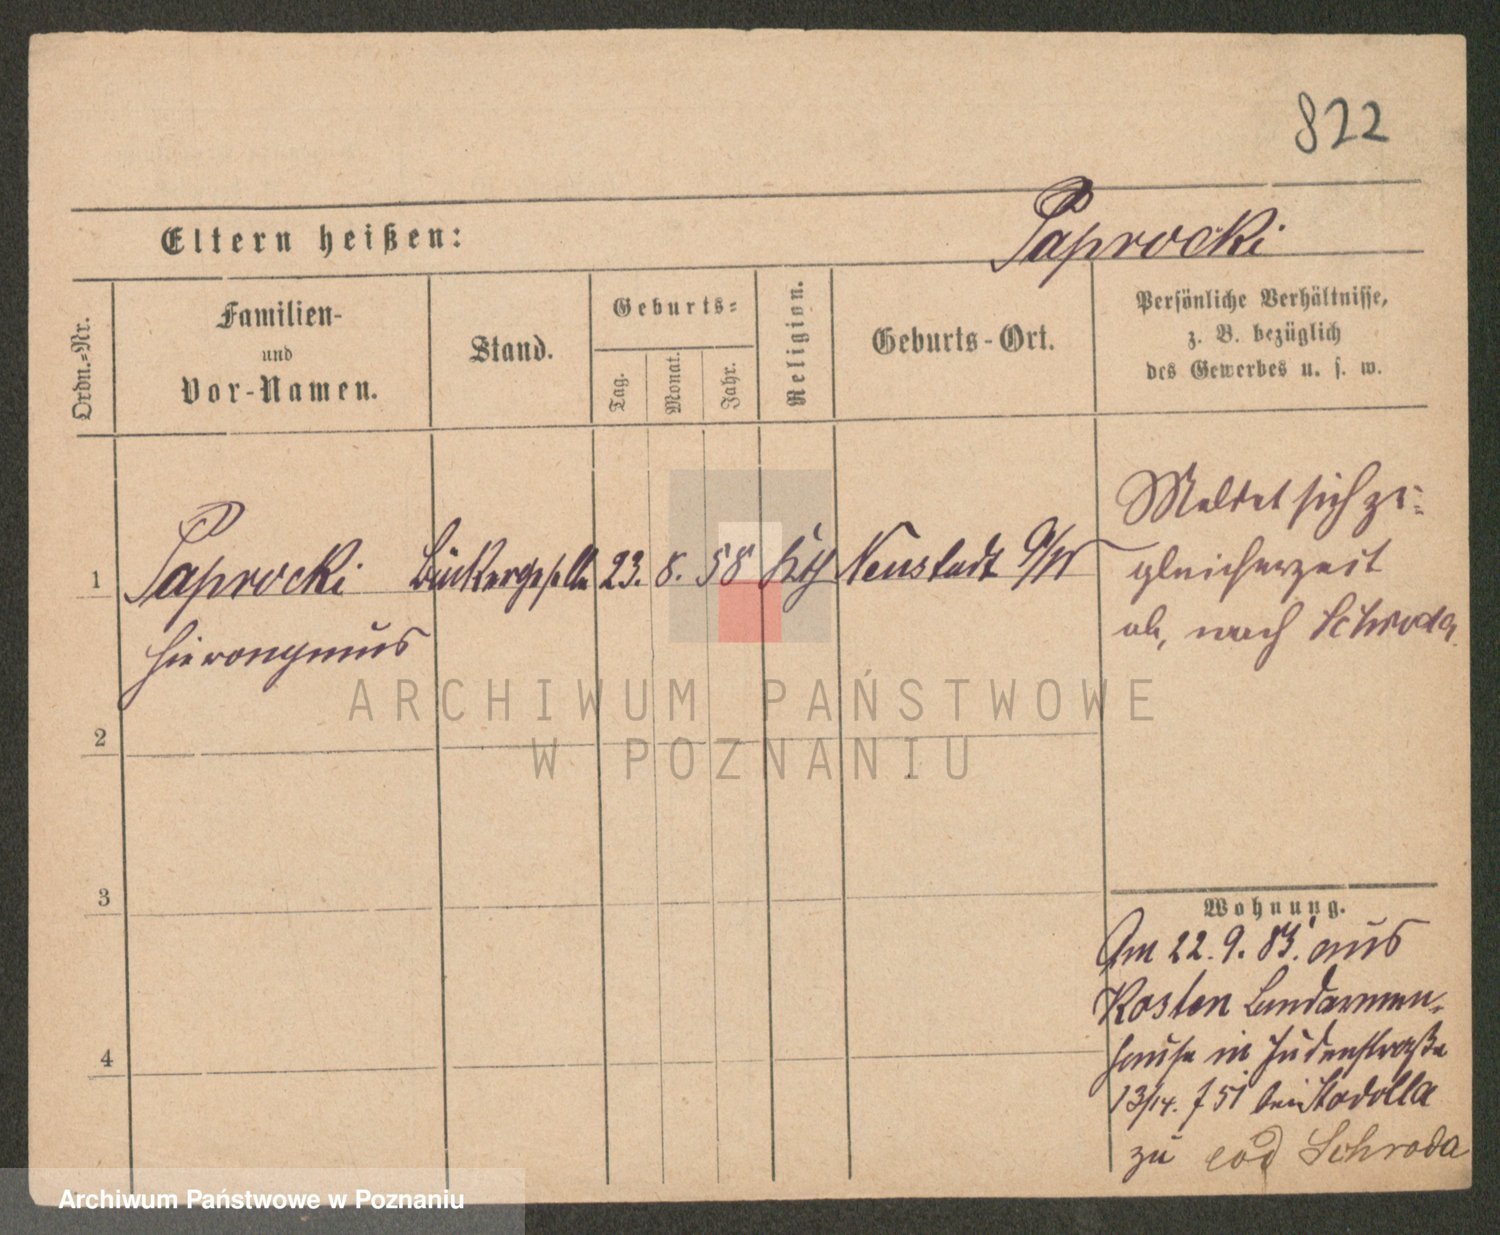 822
Eltern heißen:
Paprocki
Ordn.=Nr.
Familien-
und
Vor-Namen.
Stand.
Geburts=
Tag.
Monat.
Jahr.
Religion.
Geburts-Ort.
Persönliche Verhältnisse,
z. B. bezüglich
des Gewerbes u. s. w.
1
Paprocki
Hieronymus
Bäckergeselle
23. 8. 58
Neustadt a/W
Meldet sich zu=
gleicherzeit
ab, nach Schroda.
2
3
4
Wohnung.
Am 22. 9. 83. aus
Kosten Landarmen=
hause in Judenstraße
13/14. bei Stodolla
zu eod Schroda
ARCHIWUM PAŃSTWOWE
W POZNANIU
Archiwum Państwowe w Poznaniu